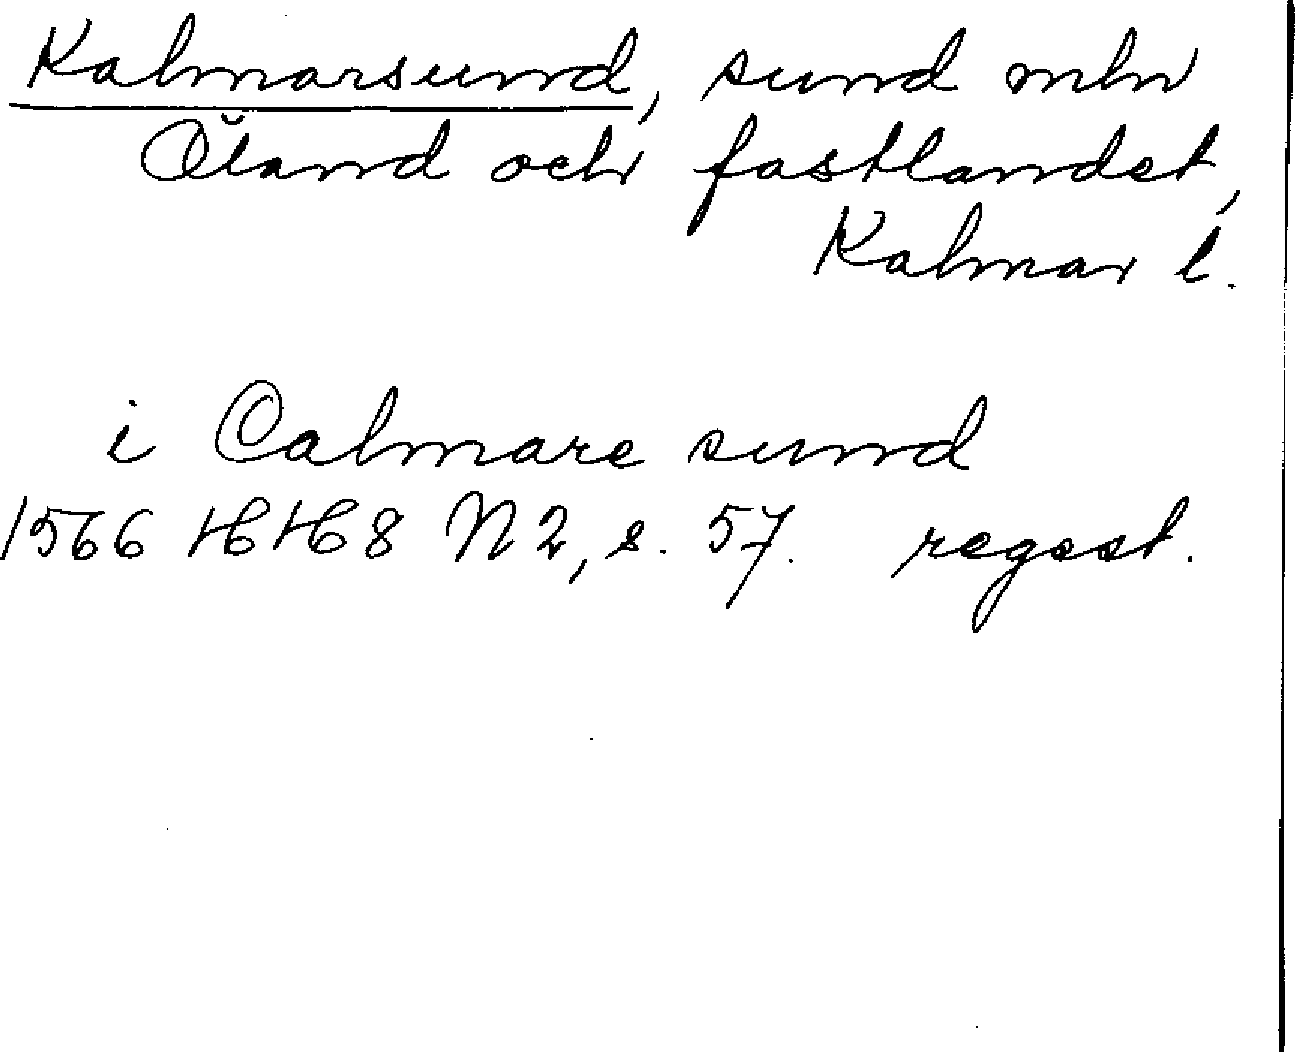 Kalmarsund, sund mln
Öland och fastlandet,
Kalmar l.
i Calmare sund
1566 HH 8 N 2, s. 57. regest.